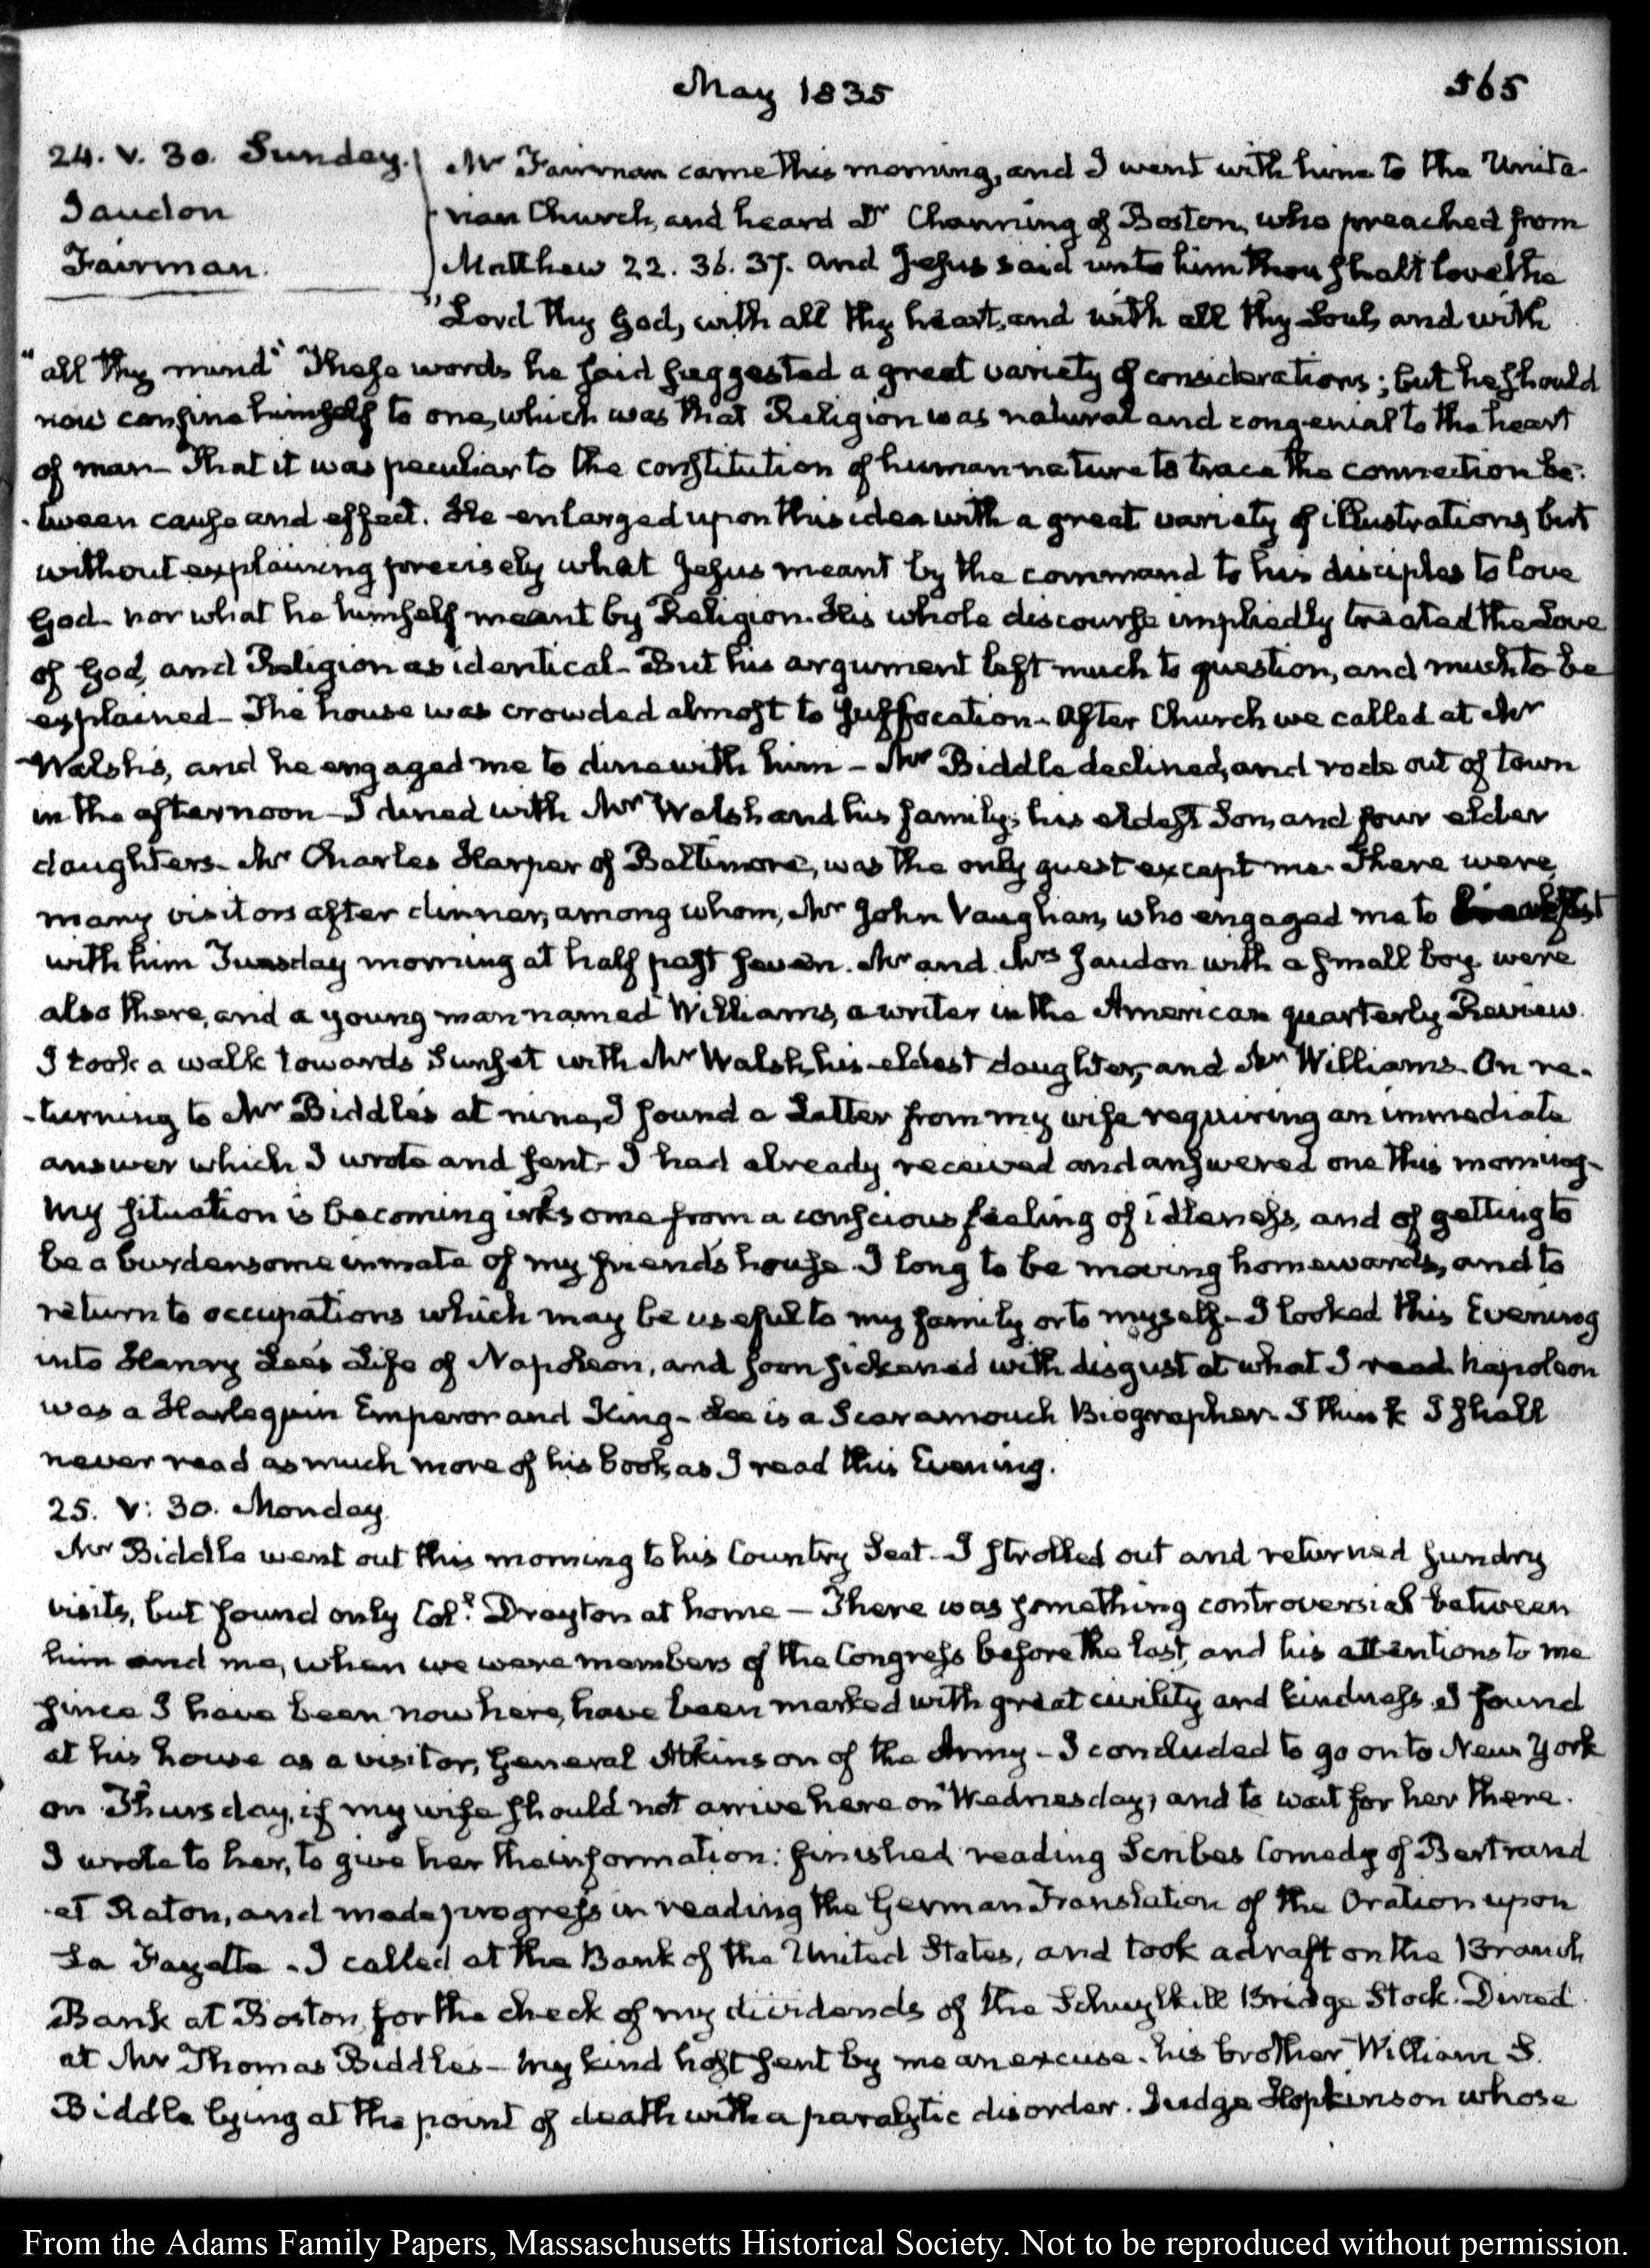 May 1835
565
24. V. 30. Sunday.
Jaudon
Fairman.
Mr Fairman came this morning, and I went with him to the Unita-
rian Church, and heard Dr Channing of Boston, who preached from
Matthew 22. 36. 37. and Jesus said unto him thou shalt love the
"Lord thy God, with all thy heart, and with all thy Soul, and with
"all thy mind" These words he said suggested a great variety of considerations; but he should
now confine himself to one, which was that Religion was natural and congenial to the heart
of man– That it was peculiar to the constitution of human nature to trace the connection be-
-tween cause and effect. He enlarged upon this idea with a great variety of illustrations, but
without explaining precisely what Jesus meant by the command to his disciples to love
God– nor what he himself meant by Religion. His whole discourse impliedly treated the Love
of God, and Religion as identical– But his argument left much to question, and much to be
explained– The house was crowded almost to suffocation– After Church we called at Mr
Walsh's, and he engaged me to dine with him– Mr Biddle declined, and rode out of town
in the afternoon– I dined with Mr Walsh and his family; his eldest Son, and four elder
daughters– Mr Charles Harper of Baltimore, was the only guest except me. There were
many visitors after dinner, among whom, Mr John Vaughan, who engaged me to breakfast
with him Tuesday morning at half past seven. Mr and Mrs Jaudon with a small boy were
also there, and a young man named Williams, a writer in the American quarterly Review.
I took a walk towards Sunset with Mr Walsh, his eldest daughter, and Mr Williams. On re-
-turning to Mr Biddle's at nine, I found a Letter from my wife requiring an immediate
answer which I wrote and sent– I had already received and answered one this morning–
My situation is becoming irksome from a conscious feeling of idleness, and of getting to
be a burdensome inmate of my friend's house. I long to be moving homewards, and to
return to occupations which may be useful to my family or to myself– I looked this Evening
into Henry Lee's Life of Napoleon, and soon sickened with disgust at what I read. Napoleon
was a Harlequin Emperor and King– Lee is a Scaramouch Biographer. I think I shall
never read as much more of his book, as I read this Evening.
25. V: 30. Monday.
Mr Biddle went out this morning to his Country Seat– I strolled out and returned sundry
visits, but found only Col? Drayton at home– There was something controversial between
him and me, when we were members of the Congress before the last, and his attentions to me
since I have been now here, have been marked with great civility and kindness. I found
at his house as a visitor, General Atkinson of the Army– I concluded to go on to New York
on Thursday, if my wife should not arrive here on Wednesday, and to wait for her there.
I wrote to her, to give her the information: finished reading Scribes Comedy of Bertrand
et Raton, and made progress in reading the German Translation of the Oration upon
La Fayette– I called at the Bank of the United States, and took a draft on the Branch
Bank at Boston for the check of my dividends of the Schuylkill Bridge Stock. Dined
at Mr Thomas Biddle's– My kind host sent by me an excuse. his brother William S.
Biddle lying at the point of death with a paralytic disorder. Judge Hopkinson whose
From the Adams Family Papers, Massachusetts Historical Society. Not to be reproduced without permission.